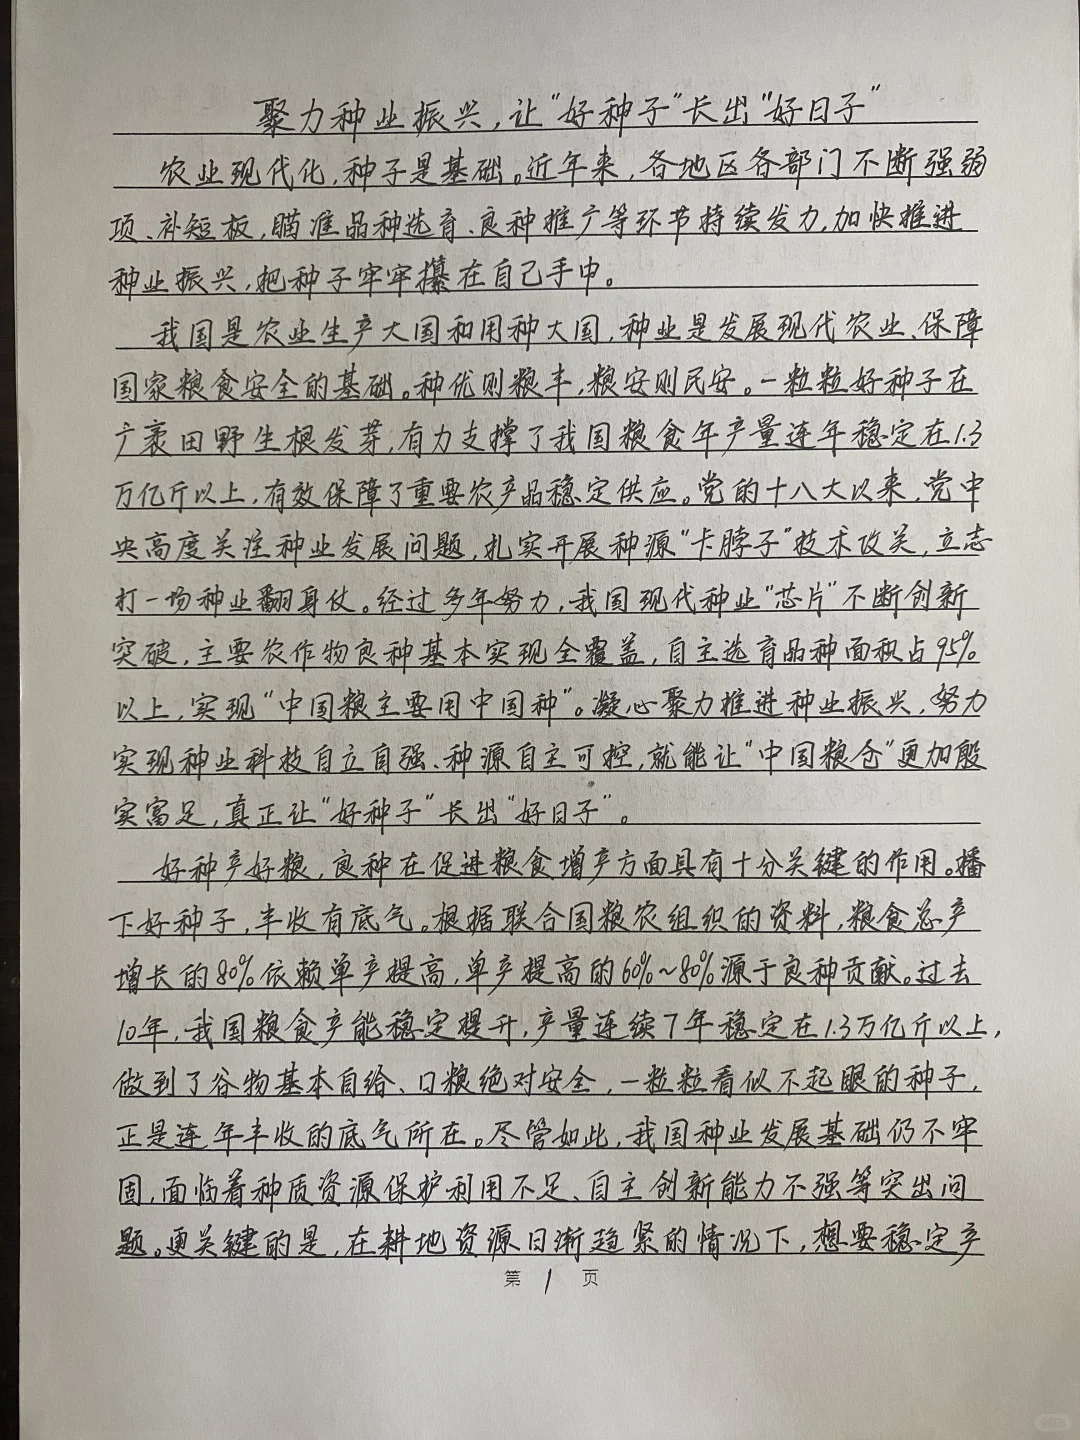 聚力种业振兴,让"好种子"长出"好日子"
农业现代化,种子是基础。近年来,各地区各部门不断强弱
项、补短板,瞄准品种选育、良种推广等环节持续发力,加快推进
种业振兴,把种子牢牢攥在自己手中。
我国是农业生产大国和用种大国,种业是发展现代农业、保障
国家粮食安全的基础。种优则粮丰,粮安则民安。一粒粒好种子在
广袤田野生根发芽,有力支撑了我国粮食年产量连年稳定在1.3
万亿斤以上,有效保障了重要农产品稳定供应。党的十八大以来,党中
央高度关注种业发展问题,扎实开展种源"卡脖子"技术攻关,立志
打一场种业翻身仗。经过多年努力,我国现代种业"芯片"不断创新
突破,主要农作物良种基本实现全覆盖,自主选育品种面积占95%
以上,实现"中国粮主要用中国种"。凝心聚力推进种业振兴,努力
实现种业科技自立自强、种源自主可控,就能让"中国粮仓"更加殷
实富足,真正让"好种子"长出"好日子"。
好种产好粮,良种在促进粮食增产方面具有十分关键的作用。播
下好种子,丰收有底气。根据联合国粮农组织的资料,粮食总产
增长的80%依赖单产提高,单产提高的60%~80%源于良种贡献。过去
10年,我国粮食产能稳定提升,产量连续7年稳定在1.3万亿斤以上,
做到了谷物基本自给、口粮绝对安全,一粒粒看似不起眼的种子,
正是连年丰收的底气所在。尽管如此,我国种业发展基础仍不牢
固,面临着种质资源保护利用不足、自主创新能力不强等突出问
题。更关键的是,在耕地资源日渐趋紧的情况下,想要稳定产
第 1 页